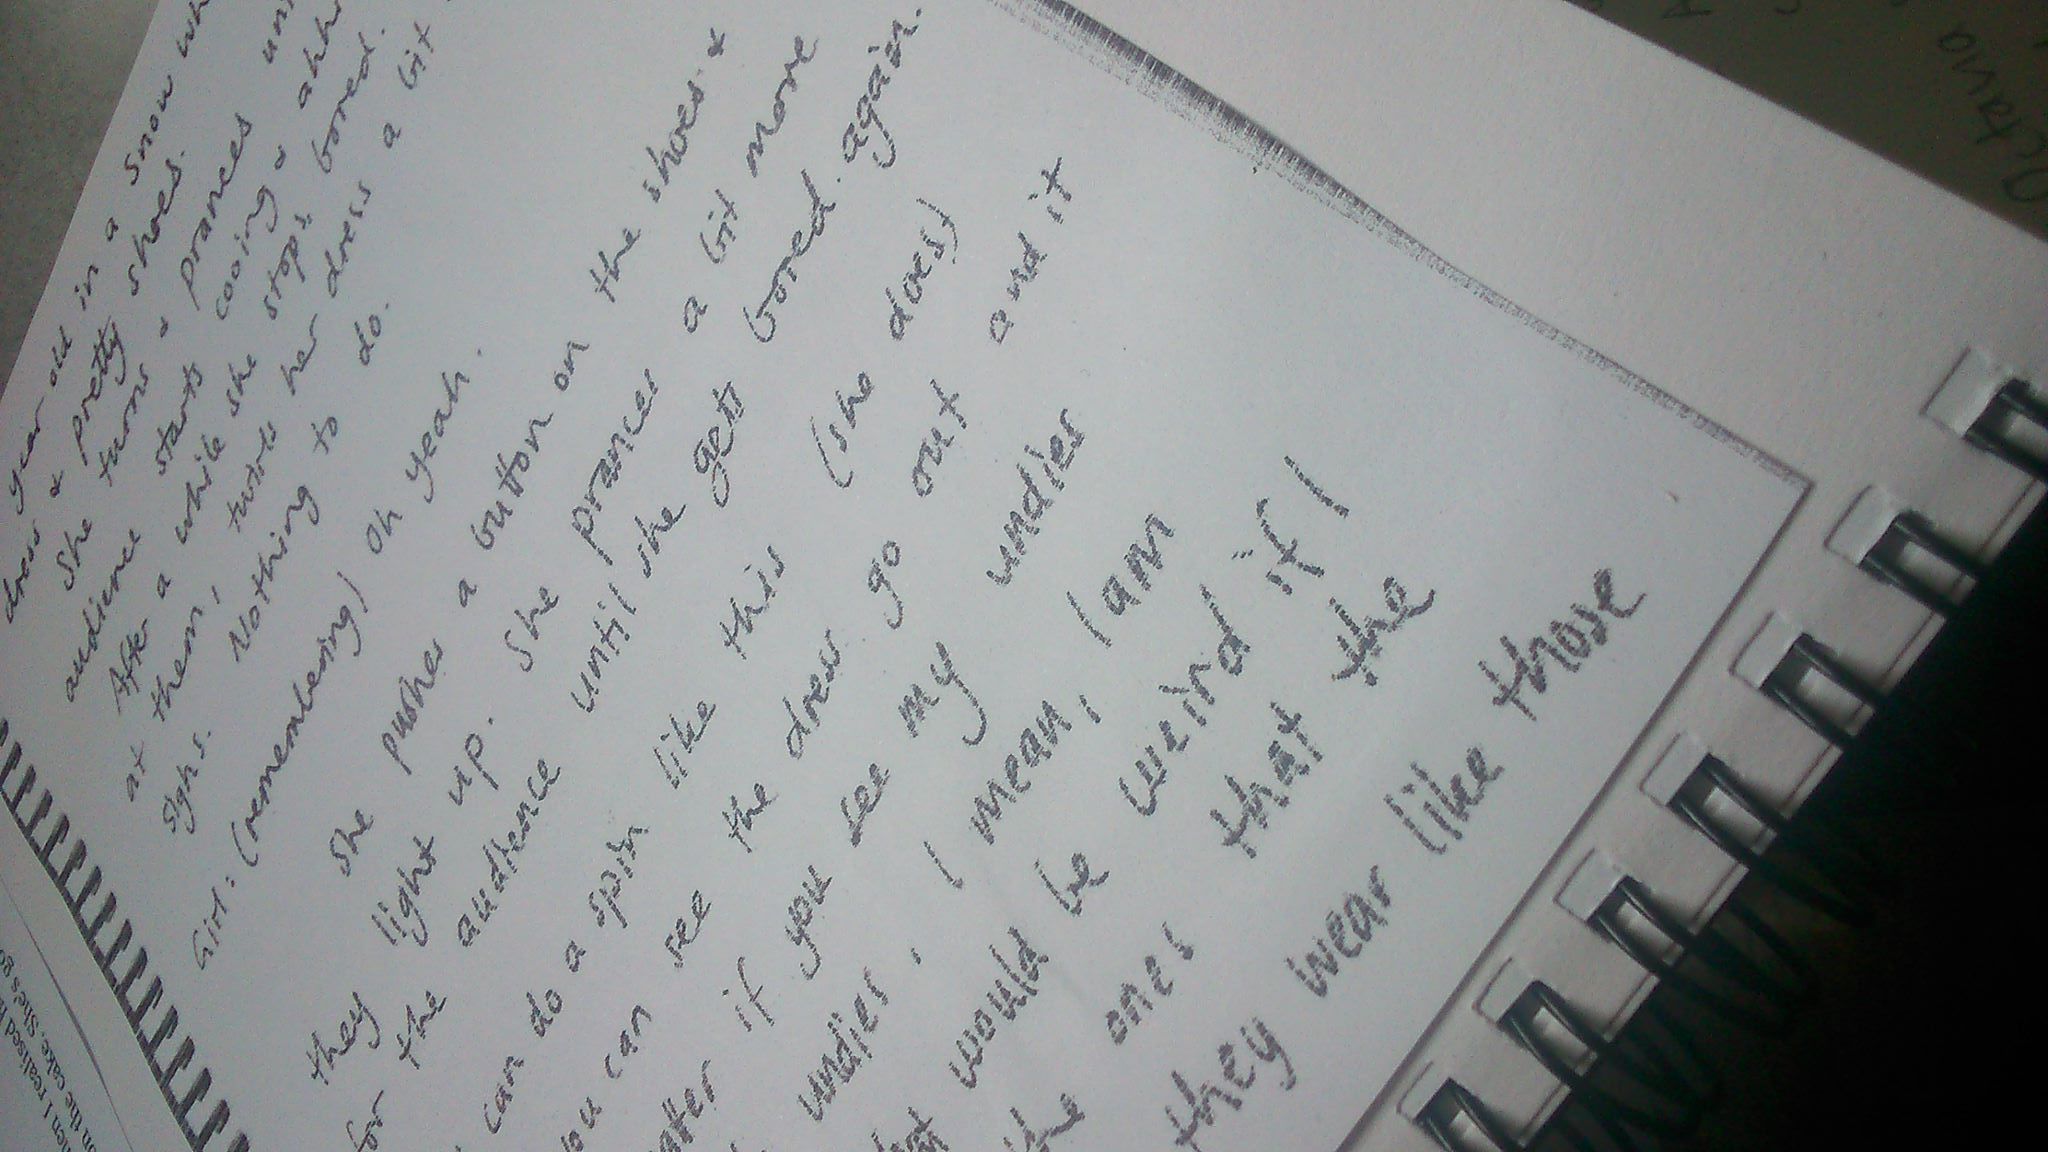 year old in a snow
dress & pretty shoes.
She turns & prances
audience starts cooing &
After a while she stops, bored.
at them, her dress a bit
sighs. Nothing to do.
Girl: (remembering) Oh yeah.
She pushes a button on the shoes &
they light up. She prances a bit more
for the audience until she gets bored. again.
can do a spin like this (she does)
can see the dress go out and it
if you see my undies
undies, I mean, I am
would be weird if I
the ones that the
they wear like those
Octavia